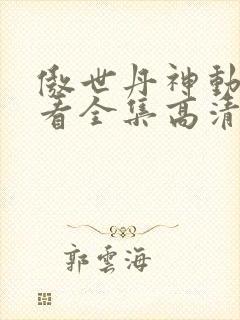 傲世丹神動
看全集高清
郭雲海